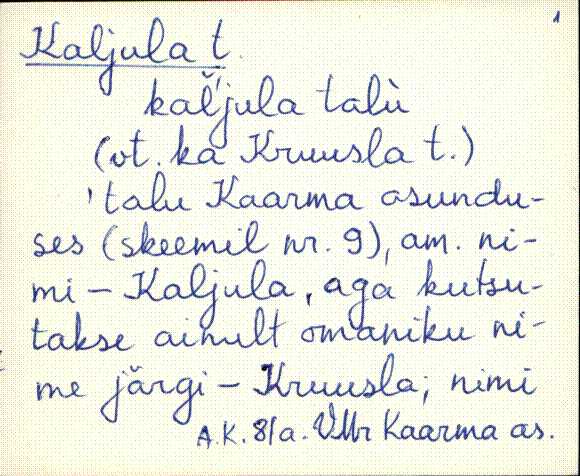 1
Kaljula t.
kal̆'jula talù
(vt. ka Kruusla t.)
'talu Kaarma asundu-
ses (skeemil nr. 9), am. ni-
mi – Kaljula, aga kutsu-
takse ainult omaniku ni-
me järgi – Kruusla; nimi
A.K. 81a. VMr Kaarma as.